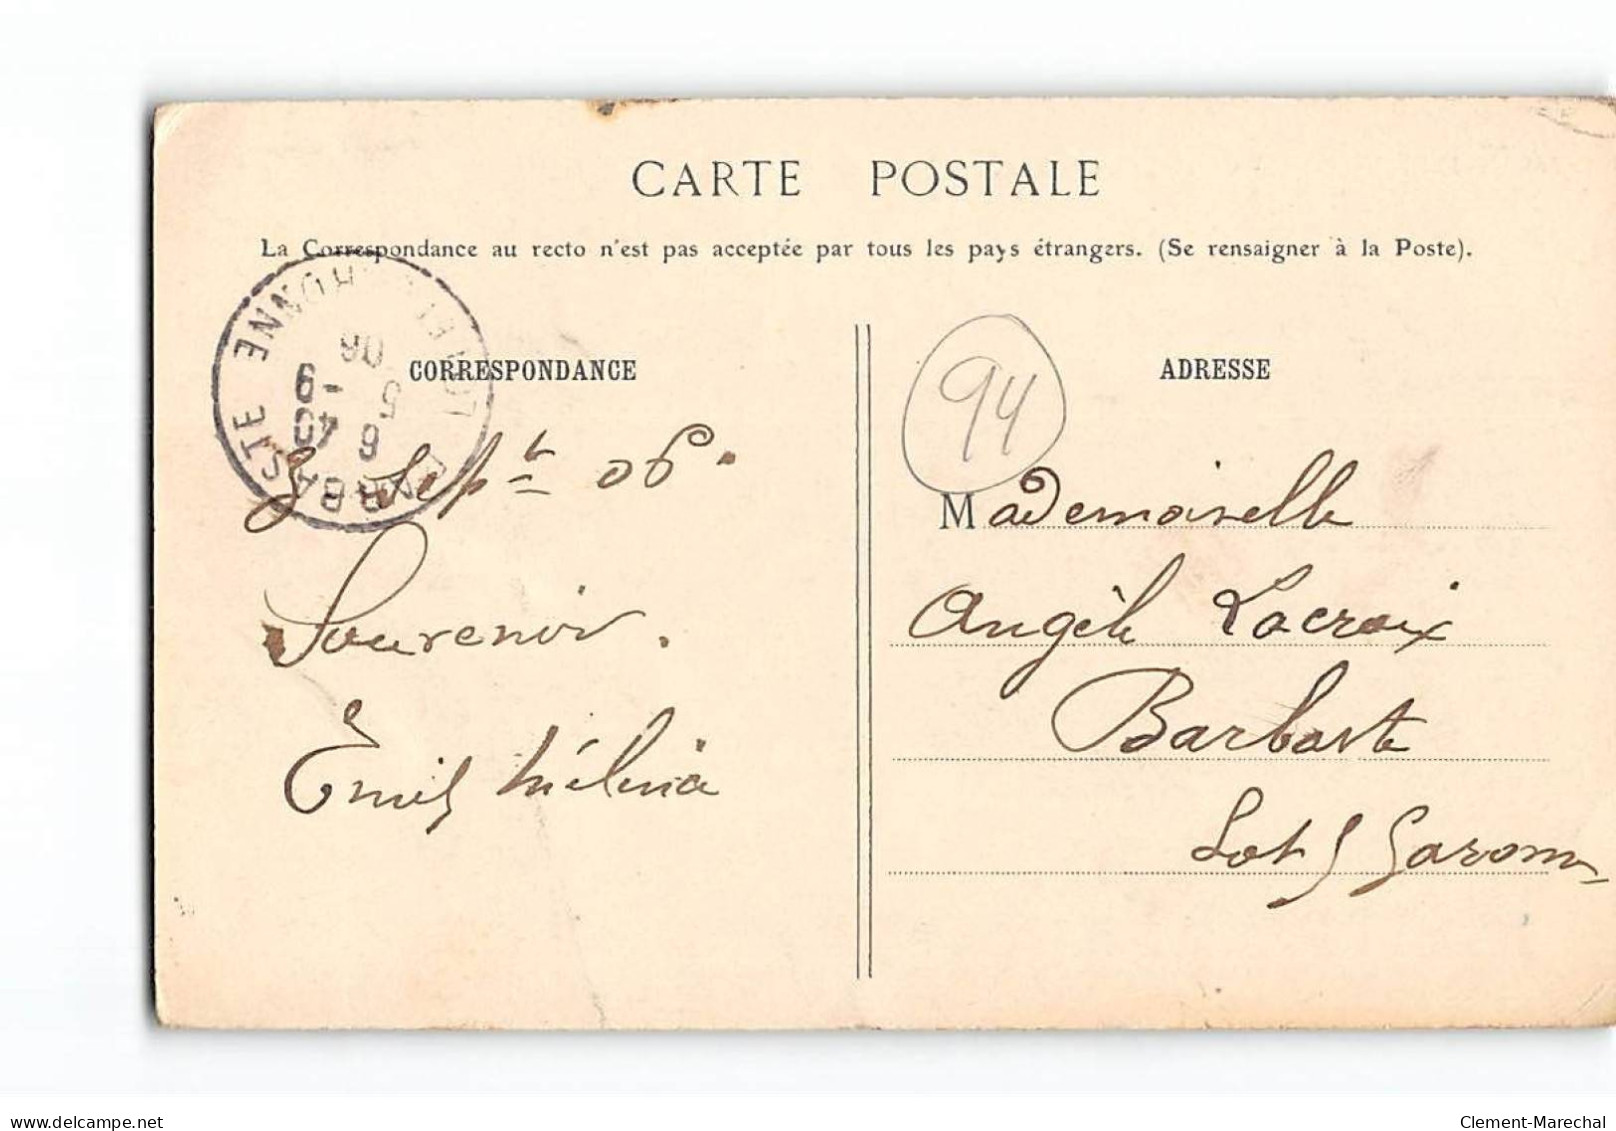 CARTE POSTALE
La Correspondance au recto n'est pas acceptée par tous les pays étrangers. (Se rensaigner à la Poste).
BARBASTE LOT-ET-GARONNE
6 40
5 -9
06
CORRESPONDANCE
3 Sept 06.
Souvenir.
Emile Mélina
94
ADRESSE
Mademoiselle
Angèle Lacroix
Barbaste
Lot & Garonne
delcampe.net
Clement-Marechal